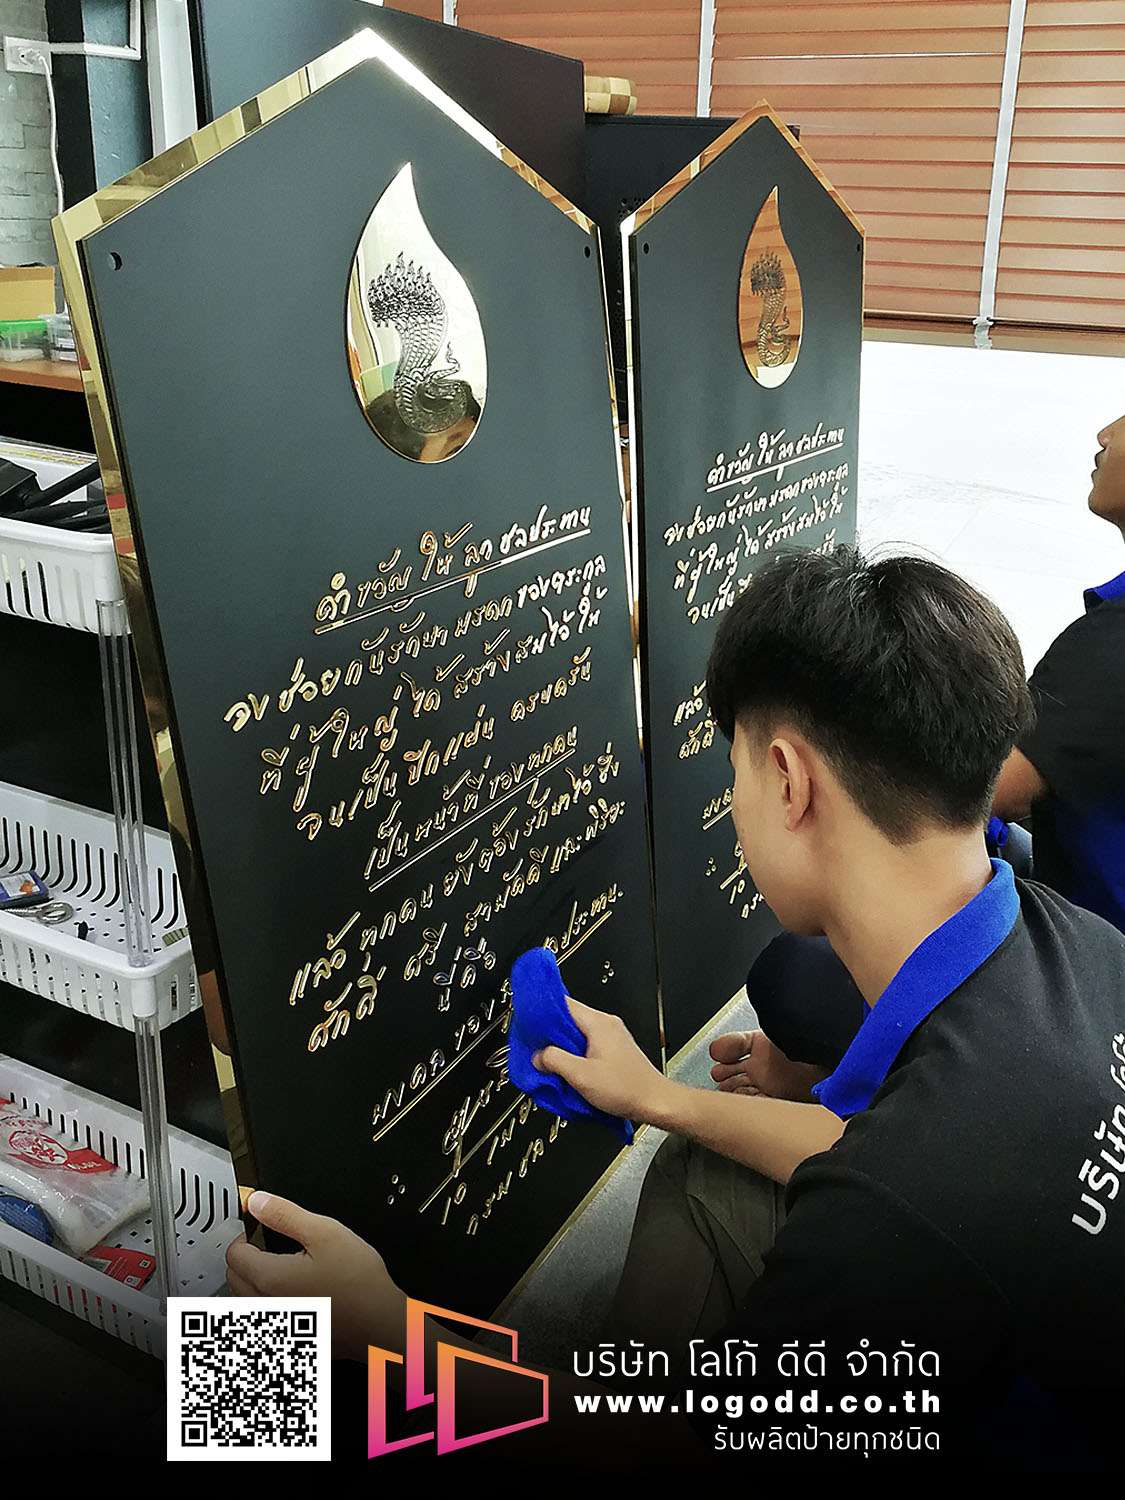 คำขวัญ ให้ ลูก ชลประทาน
จงช่วยกันรักษา มรดกของตระกูล
ที่ผู้ใหญ่ ได้ สร้างสมไว้ ให้
จนเป็น ปึกแผ่น ครบครัน
เป็นหน้าที่ ของ ทุกคน
แล้ว ทุกคน ยังต้องรักษาไว้ ซึ่ง
ศักดิ์ ศรี สามัคคี และ วิริยะ
นี่คือ
มงคล ของ
๑๐
กรม ชล
คำขวัญ ให้ ลูก ชลประทาน
จงช่วยกันรักษา มรดกของตระกูล
ที่ผู้ใหญ่ ได้ สร้างสมไว้ ให้
จนเป็น
แล้ว
ศักดิ์
บริษัท
บริษัท โลโก้ ดีดี จำกัด
www.logodd.co.th
รับผลิตป้ายทุกชนิด